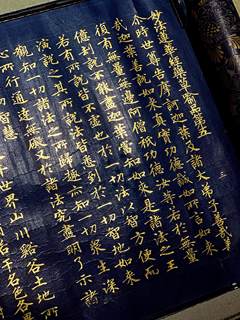 妙法蓮華經藥草喻品第五 三
尒時世尊告摩訶迦葉及諸大弟子善哉善
哉迦葉善說如來真實功德誠如所言如來
復有無量無邊阿僧祇功德汝等若於無量
億劫說不能盡迦葉當知如來是諸法之王
若有所說皆不虛也於一切法以智方便而
演說之其所說法皆悉到於一切智地如來
觀知一切諸法之所歸趣亦知一切衆生深
心所行通達無礙又於諸法究盡明了示諸
一切智慧
世界山川谿谷土地所
若干名色各異